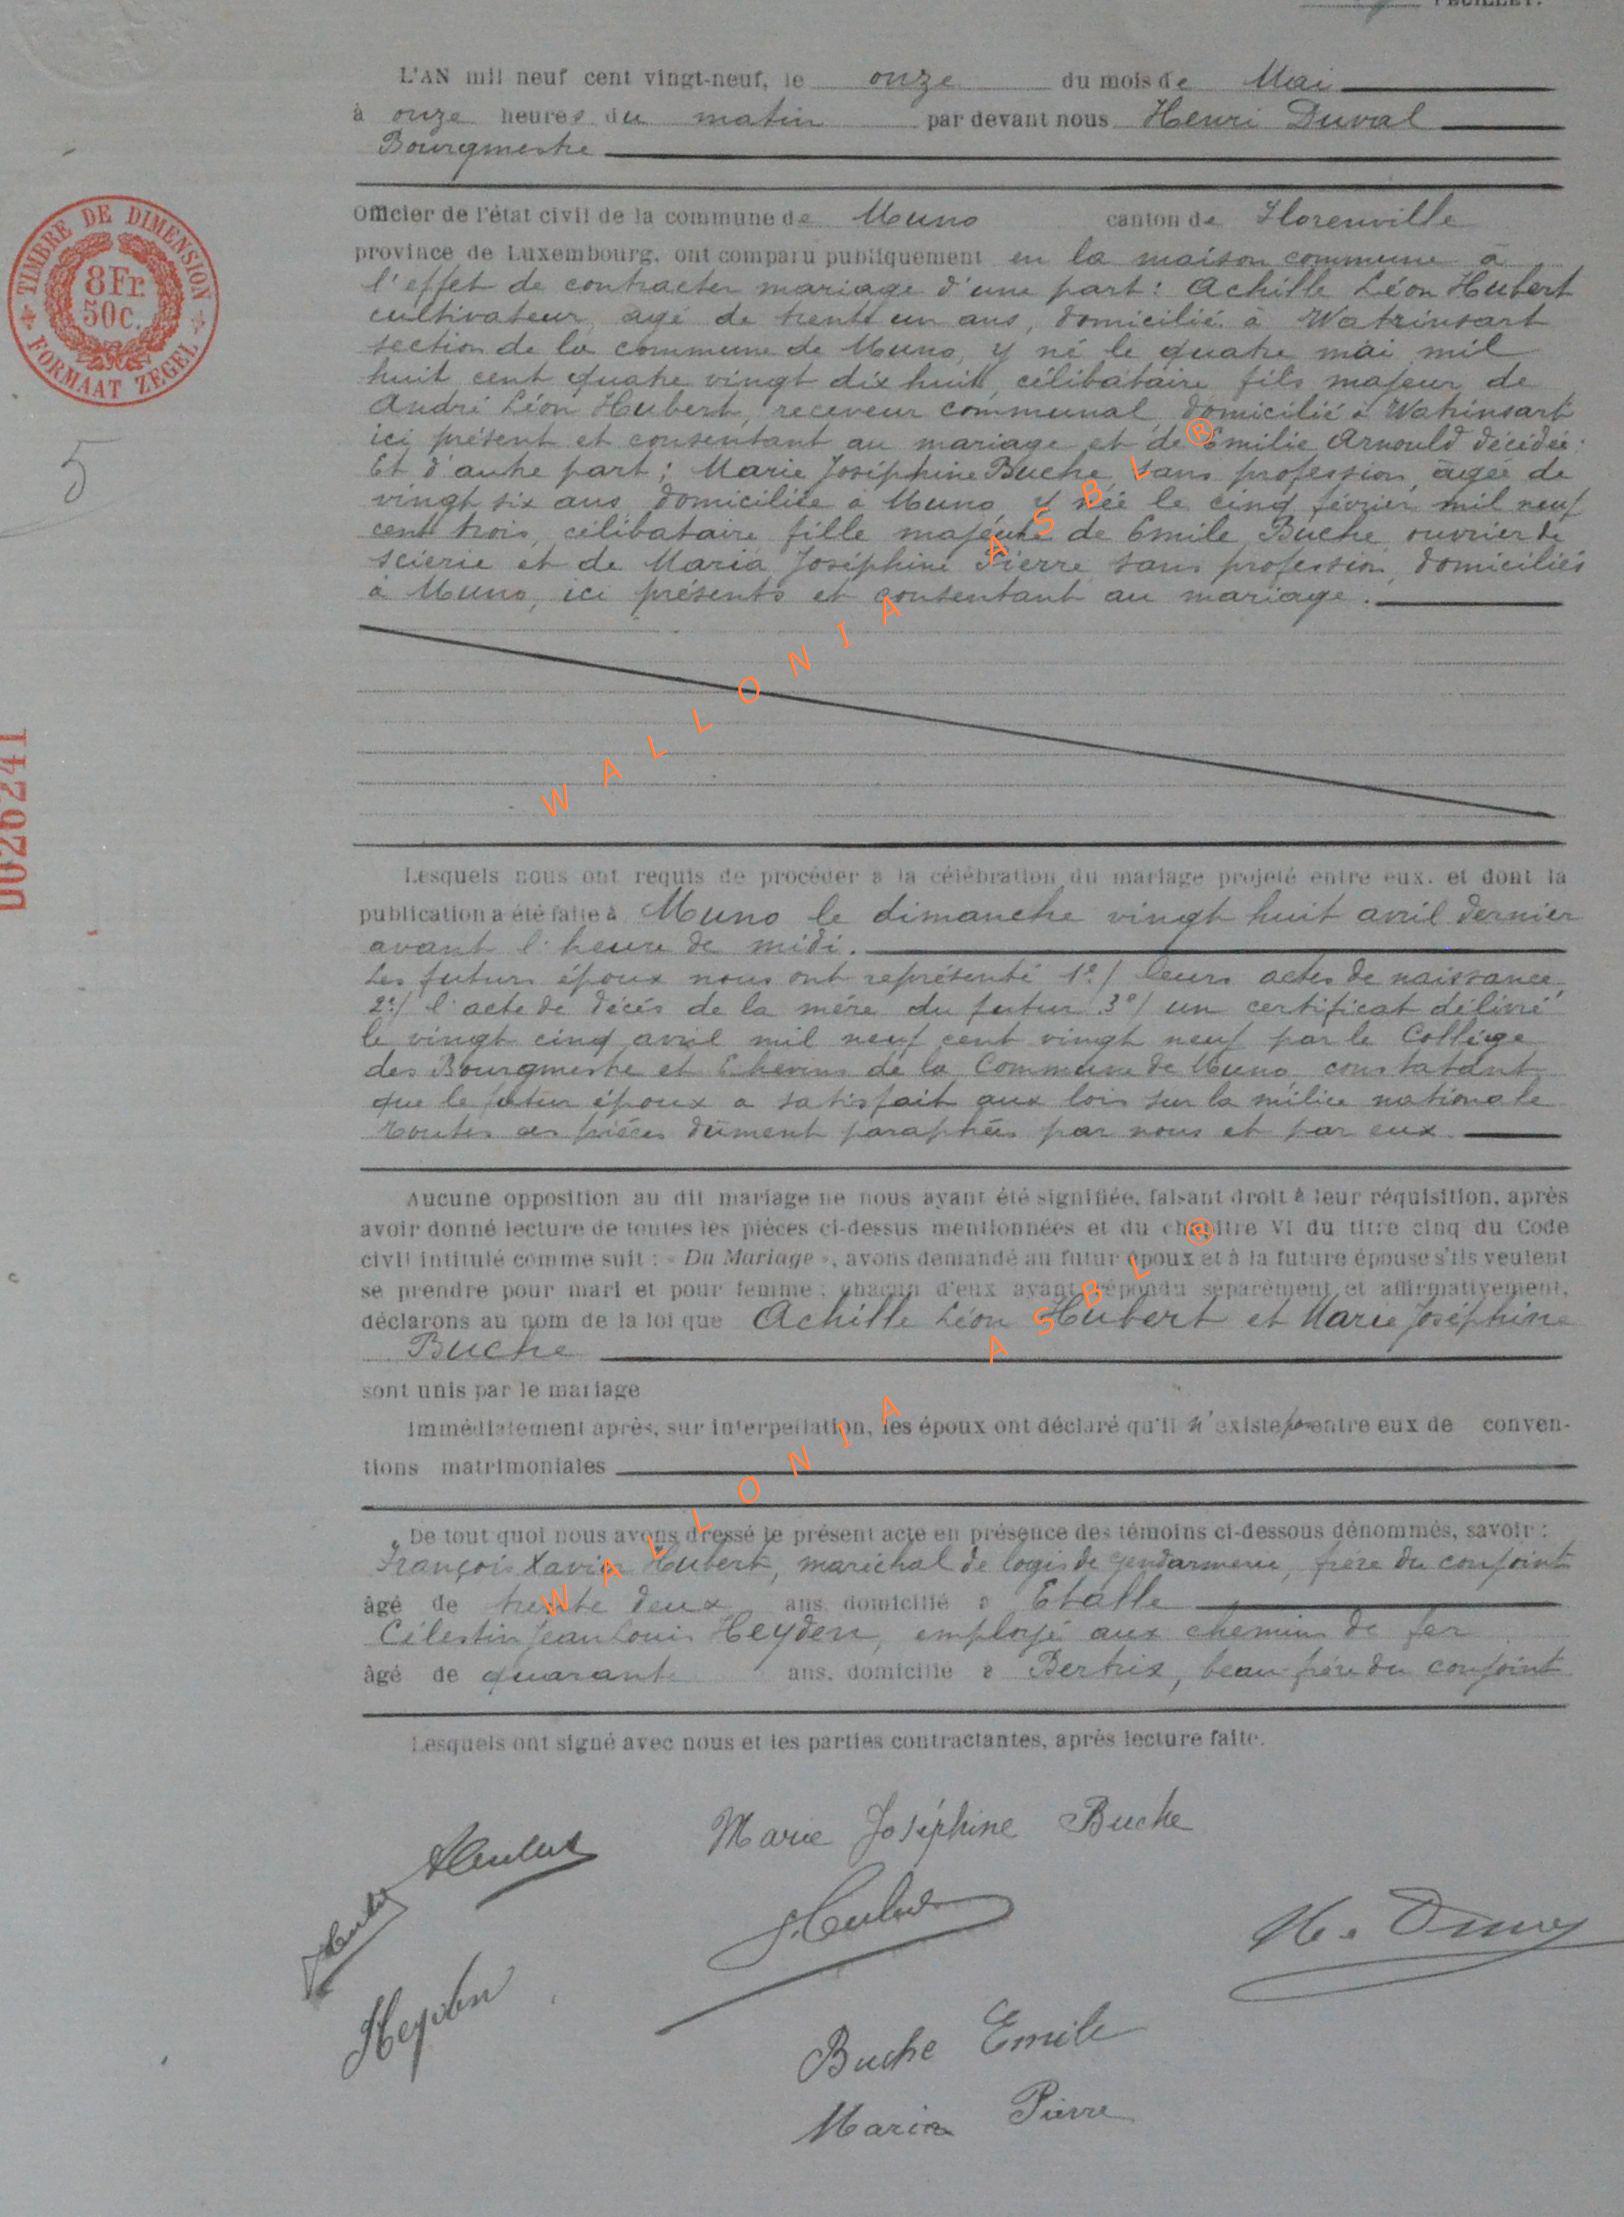 FEUILLET.
L'AN mil neuf cent vingt-neuf, le onze du mois de Mai
à onze heures du matin par devant nous Henri Duval
Bourgmestre
Officier de l'état civil de la commune de Muno canton de Florenville
province de Luxembourg, ont comparu publiquement en la maison commune à
l'effet de contracter mariage d'une part : Achille Léon Hubert
cultivateur, agé de trente un ans, domicilié à Watrinsart
section de la commune de Muno, y né le quatre mai mil
huit cent quatre vingt dix huit, célibataire fils majeur de
André Léon Hubert, receveur communal, domicilié à Watrinsart
ici présent et consentant au mariage et de Emilie Arnould décédée.
Et d'autre part : Marie Joséphine Buche, sans profession, agée de
vingt six ans, domiciliée à Muno, y née le cinq février mil neuf
cent trois, célibataire fille majeure de Emile Buche, ouvrier de
scierie et de Maria Joséphine Pierre, sans profession, domiciliés
à Muno, ici présents et consentant au mariage.
Lesquels nous ont requis de procéder à la célébration du mariage projeté entre eux, et dont la
publication a été faite à Muno le dimanche vingt huit avril dernier
avant l'heure de midi.
Les futurs époux nous ont représenté 1º/ leurs actes de naissance,
2º/ l'acte de décès de la mère du futur 3º/ un certificat délivré
le vingt cinq avril mil neuf cent vingt neuf par le Collège
des Bourgmestre et Echevins de la Commune de Muno, constatant
que le futur époux a satisfait aux lois sur la milice nationale
Toutes ces pièces dûment paraphées par nous et par eux.
Aucune opposition au dit mariage ne nous ayant été signifiée, faisant droit à leur réquisition, après
avoir donné lecture de toutes les pièces ci-dessus mentionnées et du chapitre VI du titre cinq du Code
civil intitulé comme suit : « Du Mariage », avons demandé au futur époux et à la future épouse s'ils veulent
se prendre pour mari et pour femme ; chacun d'eux ayant répondu séparément et affirmativement,
déclarons au nom de la loi que Achille Léon Hubert et Marie Joséphine
Buche
sont unis par le mariage
Immédiatement après, sur interpellation, les époux ont déclaré qu'il n'existe pas entre eux de conven-
tions matrimoniales
De tout quoi nous avons dressé le présent acte en présence des témoins ci-dessous dénommés, savoir :
François Xavier Hubert, maréchal de logis de gendarmerie, frère du conjoint
âgé de trente deux ans, domicilié à Etalle
Célestin Jean Louis Heyden, employé aux chemins de fer
âgé de quarante ans, domicilié à Bertrix, beau-frère du conjoint
Lesquels ont signé avec nous et les parties contractantes, après lecture faite.
Marie Joséphine Buche
AHubert
Hubert
Hubert
H. Duval
Heyden
Buche Emile
Maria Pierre
TIMBRE DE DIMENSION
8Fr.
50c.
FORMAAT ZEGEL
5
D026241
WALLONIA ASBL ®
WALLONIA ASBL ®